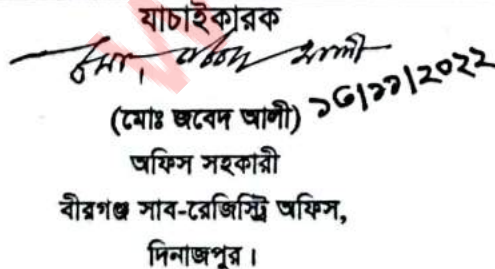 যাচাইকারক
মোঃ জবেদ আলী
(মোঃ জবেদ আলী) ১৬/১১/২০২২
অফিস সহকারী
বীরগঞ্জ সাব-রেজিস্ট্রি অফিস,
দিনাজপুর।